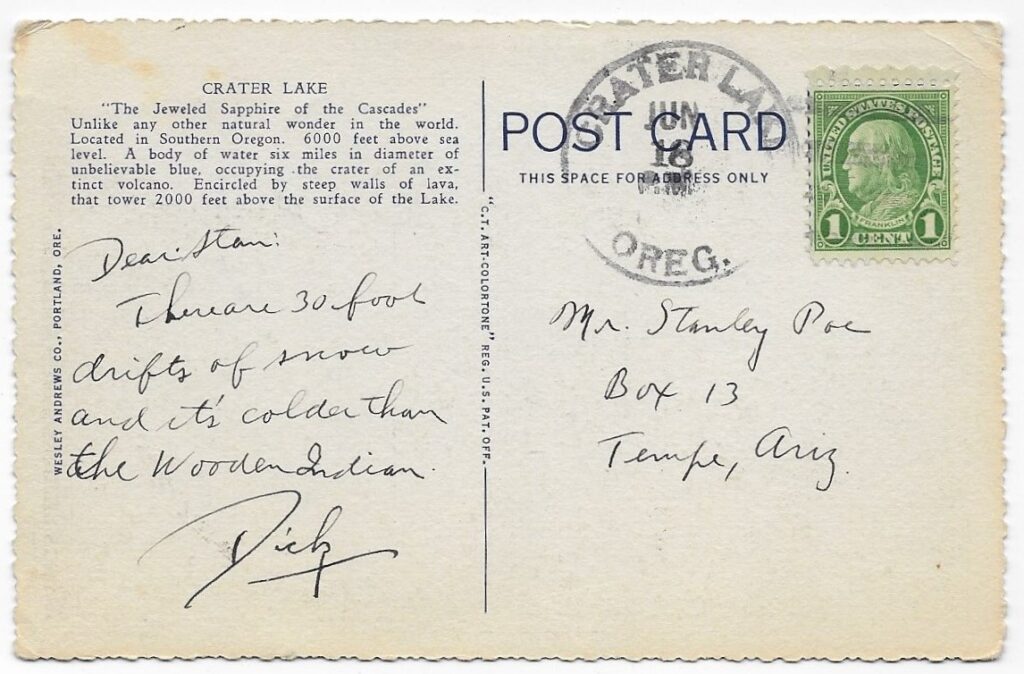 CRATER LAKE
"The Jeweled Sapphire of the Cascades"
Unlike any other natural wonder in the world.
Located in Southern Oregon. 6000 feet above sea
level. A body of water six miles in diameter of
unbelievable blue, occupying the crater of an ex-
tinct volcano. Encircled by steep walls of lava,
that tower 2000 feet above the surface of the Lake.
Dear Stan:
There are 30 foot
drifts of snow
and it's colder than
the Wooden Indian.
Dick
WESLEY ANDREWS CO., PORTLAND, ORE.
"C.T. ART-COLORTONE" REG. U.S. PAT. OFF.
POST CARD
THIS SPACE FOR ADDRESS ONLY
CRATER LA
JUN
18
OREG.
UNITED STATES POSTAGE
FRANKLIN
1 CENT 1
Mr. Stanley Poe
Box 13
Tempe, Ariz.